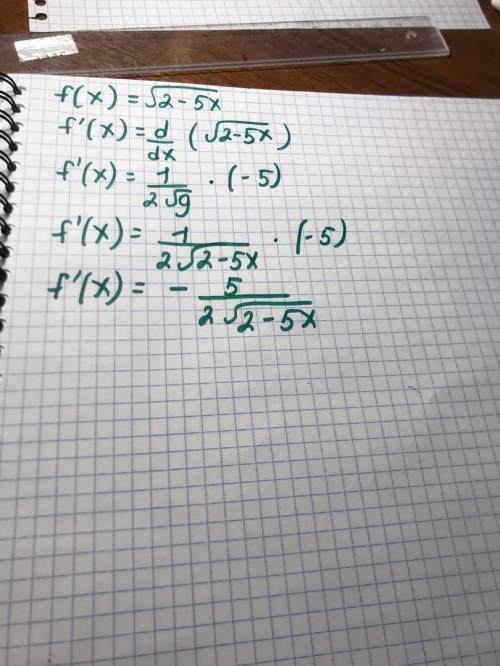 f(x) = √2-5x
f'(x) = d/dx (√2-5x)
f'(x) = 1/2√g · (-5)
f'(x) = 1/2√2-5x · (-5)
f'(x) = - 5/2√2-5x